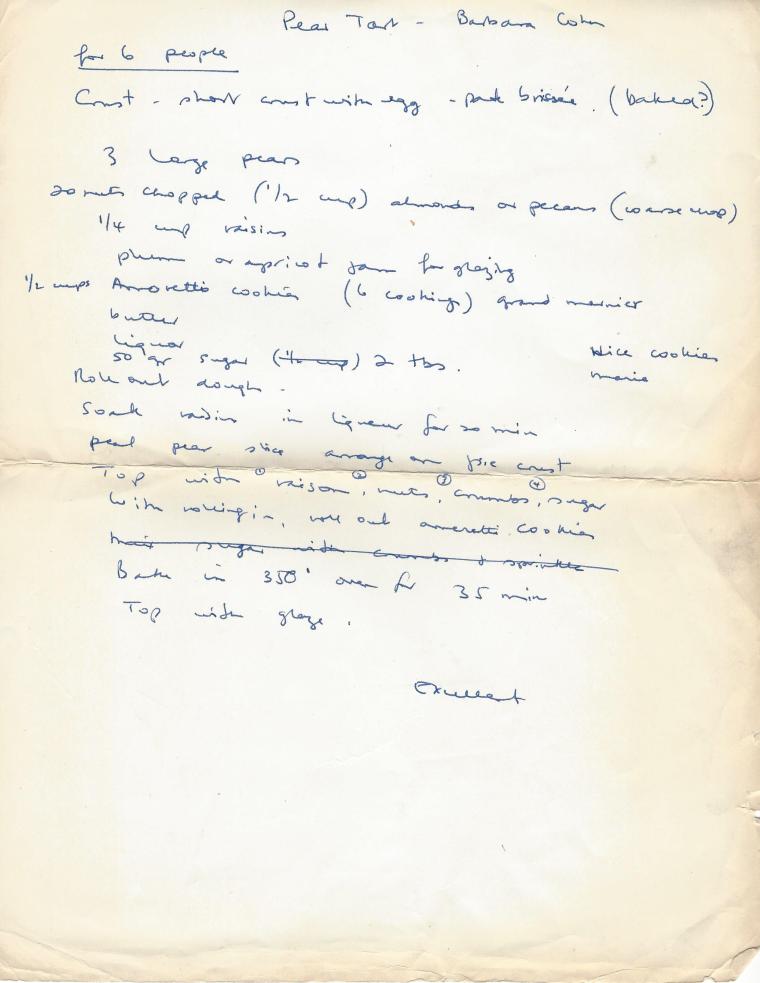 Pear Tart - Barbara Cohn
for 6 people
Crust - short crust with egg - pate brissée. (baked?)
3 large pears
20 nuts chopped (1/2 cup) almonds or pecans (coarse chop)
1/4 cup raisins
plum or apricot jam for glazing
1/2 cups Amoretti cookies (6 cookings) grand marnier
butter
liquor
50 gr sugar (1/4 cup) 2 tbs.
Nice cookies
marie
Roll out dough.
Soak raisins in liqueur for 20 min
peal pear slice arrange on pie crust
Top with ① raison, ② nuts, ③ crumbs, ④ sugar
With rolling in, roll out ameretti cookies
mix sugar with crumbs & sprinkle
Bake in 350° oven for 35 min
Top with glaze.
Excellent